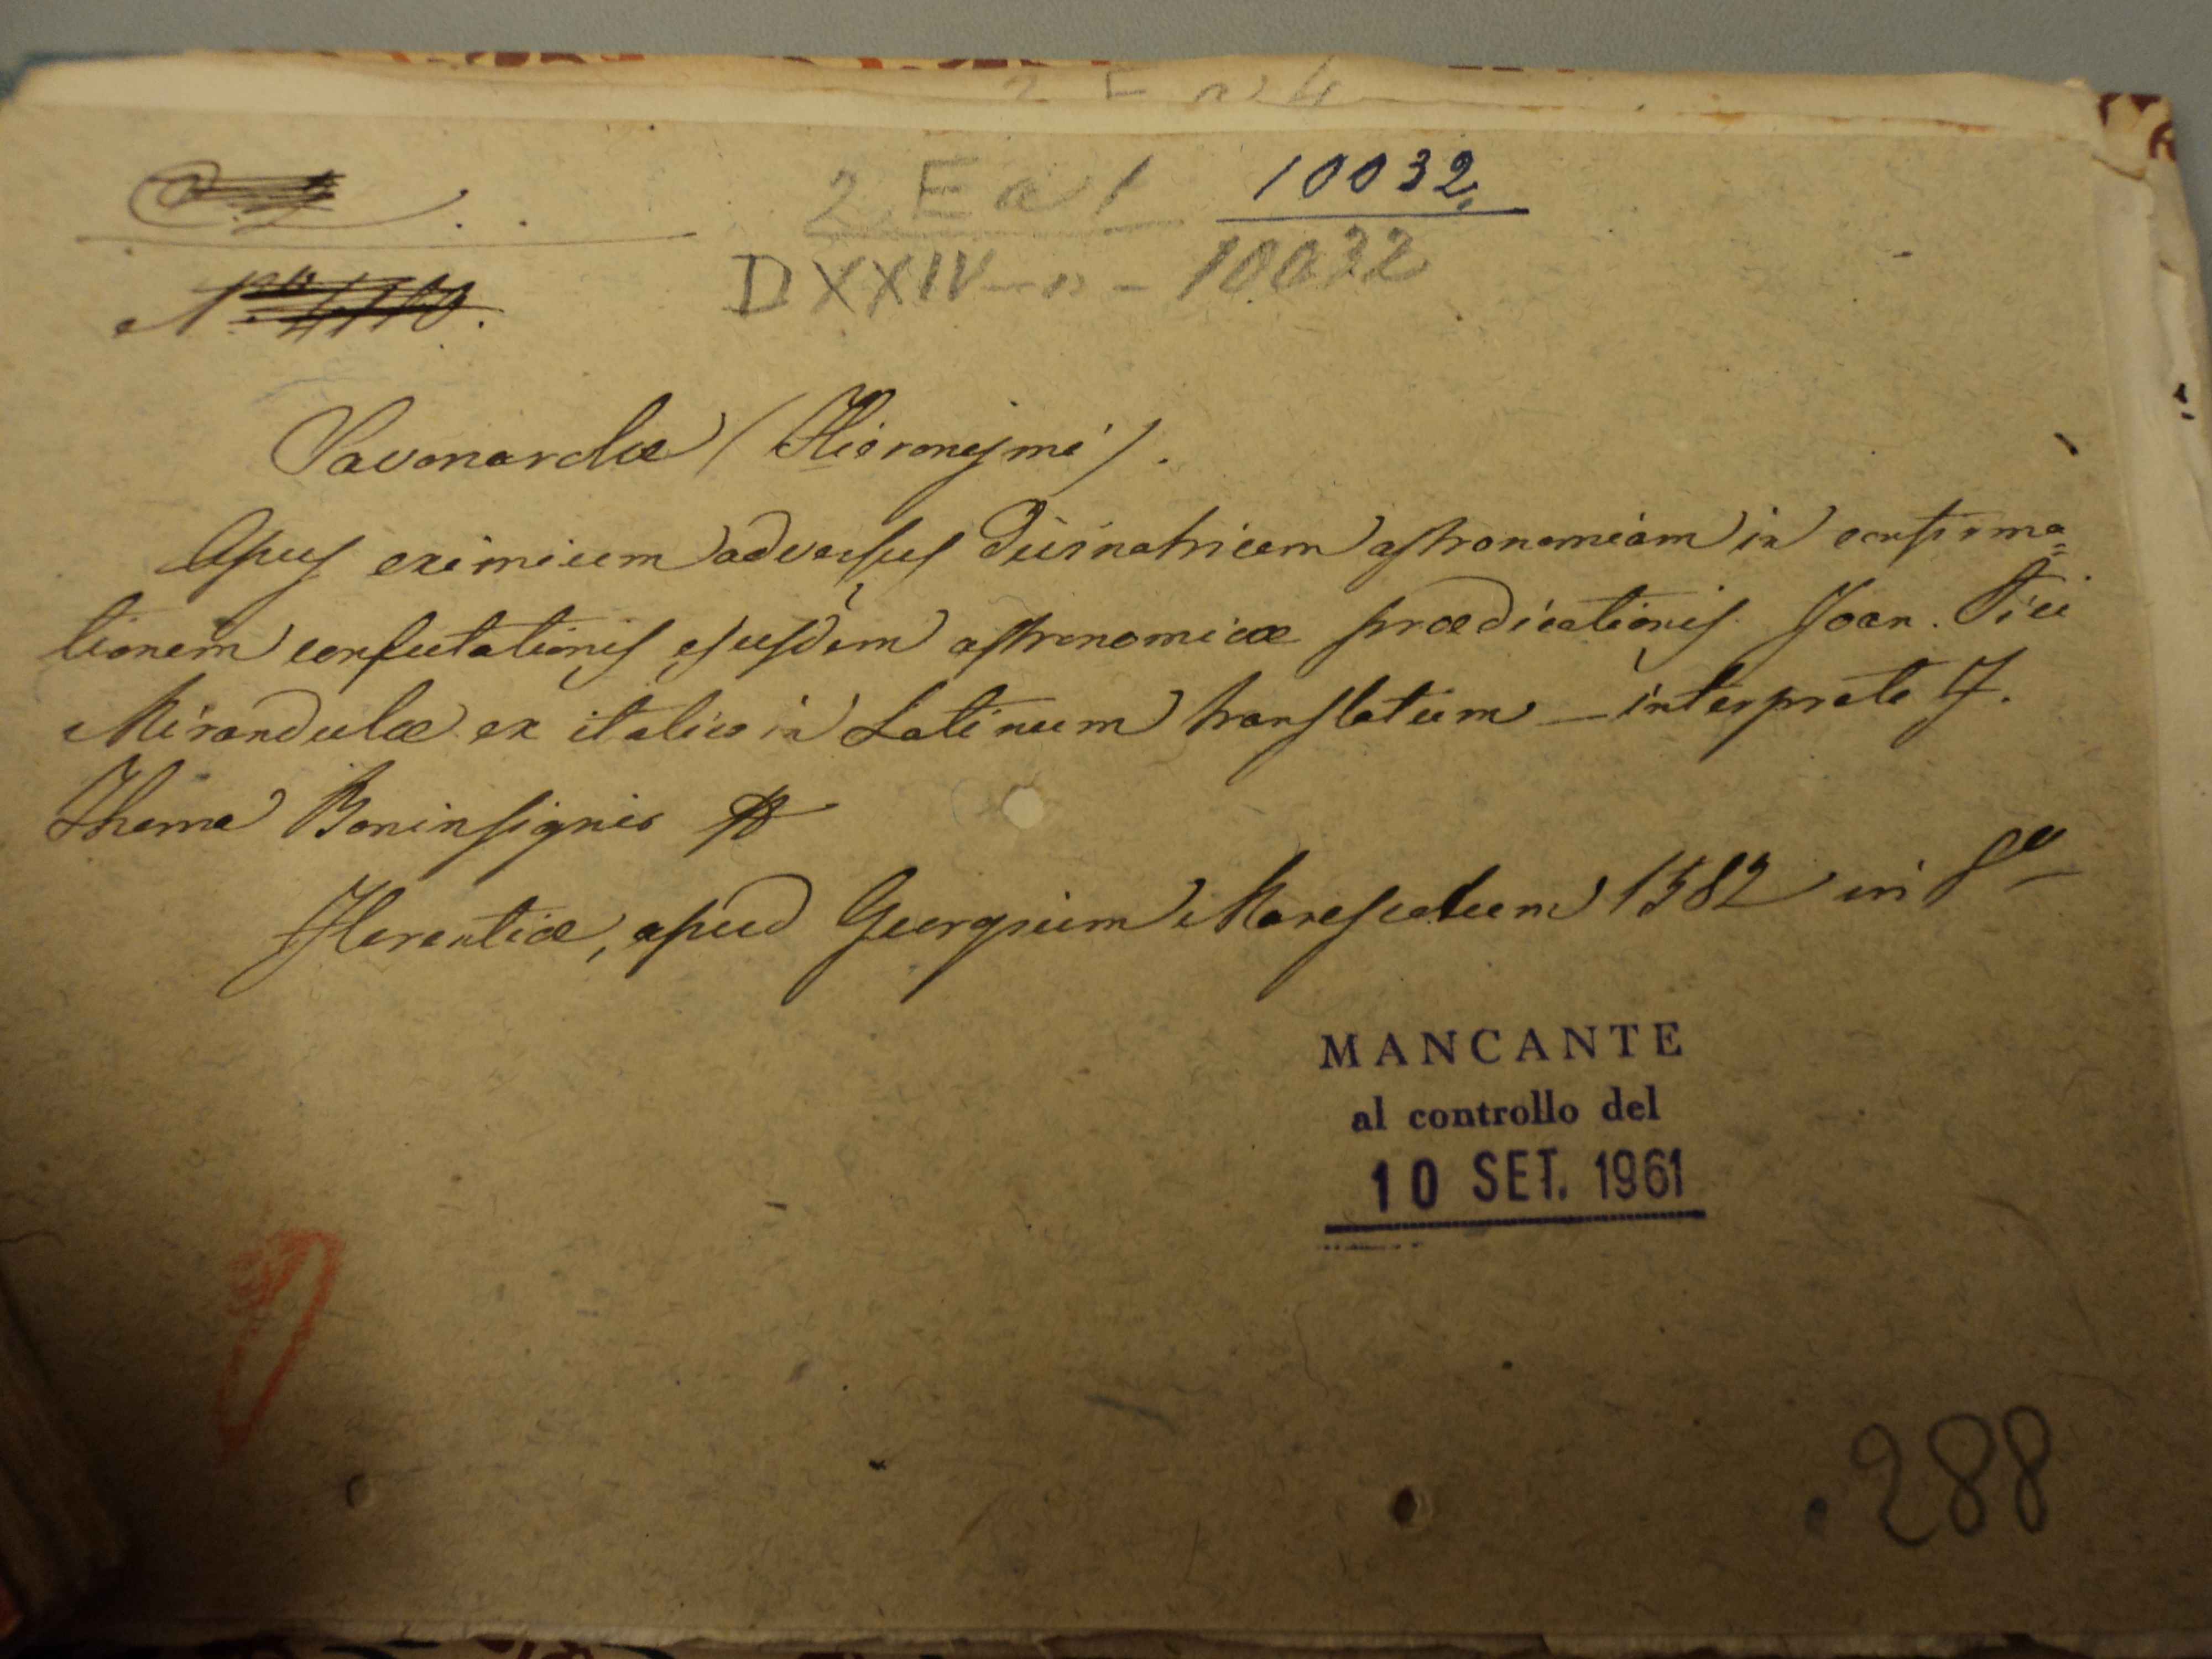 2 E a 1
10032
DXXIV - n - 10032
Savonarolæ (Hieronymi).
Opus eximium adversus divinatricem astronomiam in confirma=
tionem confutationis ejusdem astronomicæ prædicationis Joan. Pici
Mirandulæ ex italico in Latinum translatum – interprete F.
Thoma Boninsignio
Florentiæ, apud Georgium Marescotum 1582 in 8º
MANCANTE
al controllo del
10 SET. 1961
288